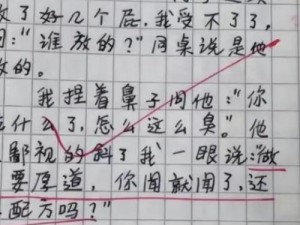 放了好几个屁，我受不了了，
问：“谁放的？”同桌说是他
放的。
我捏着鼻子问他：“你
吃什么了，怎么这么臭。”他
鄙视的斜了我一眼说：“做
要厚道，你闻就闻了，还
配方吗？”